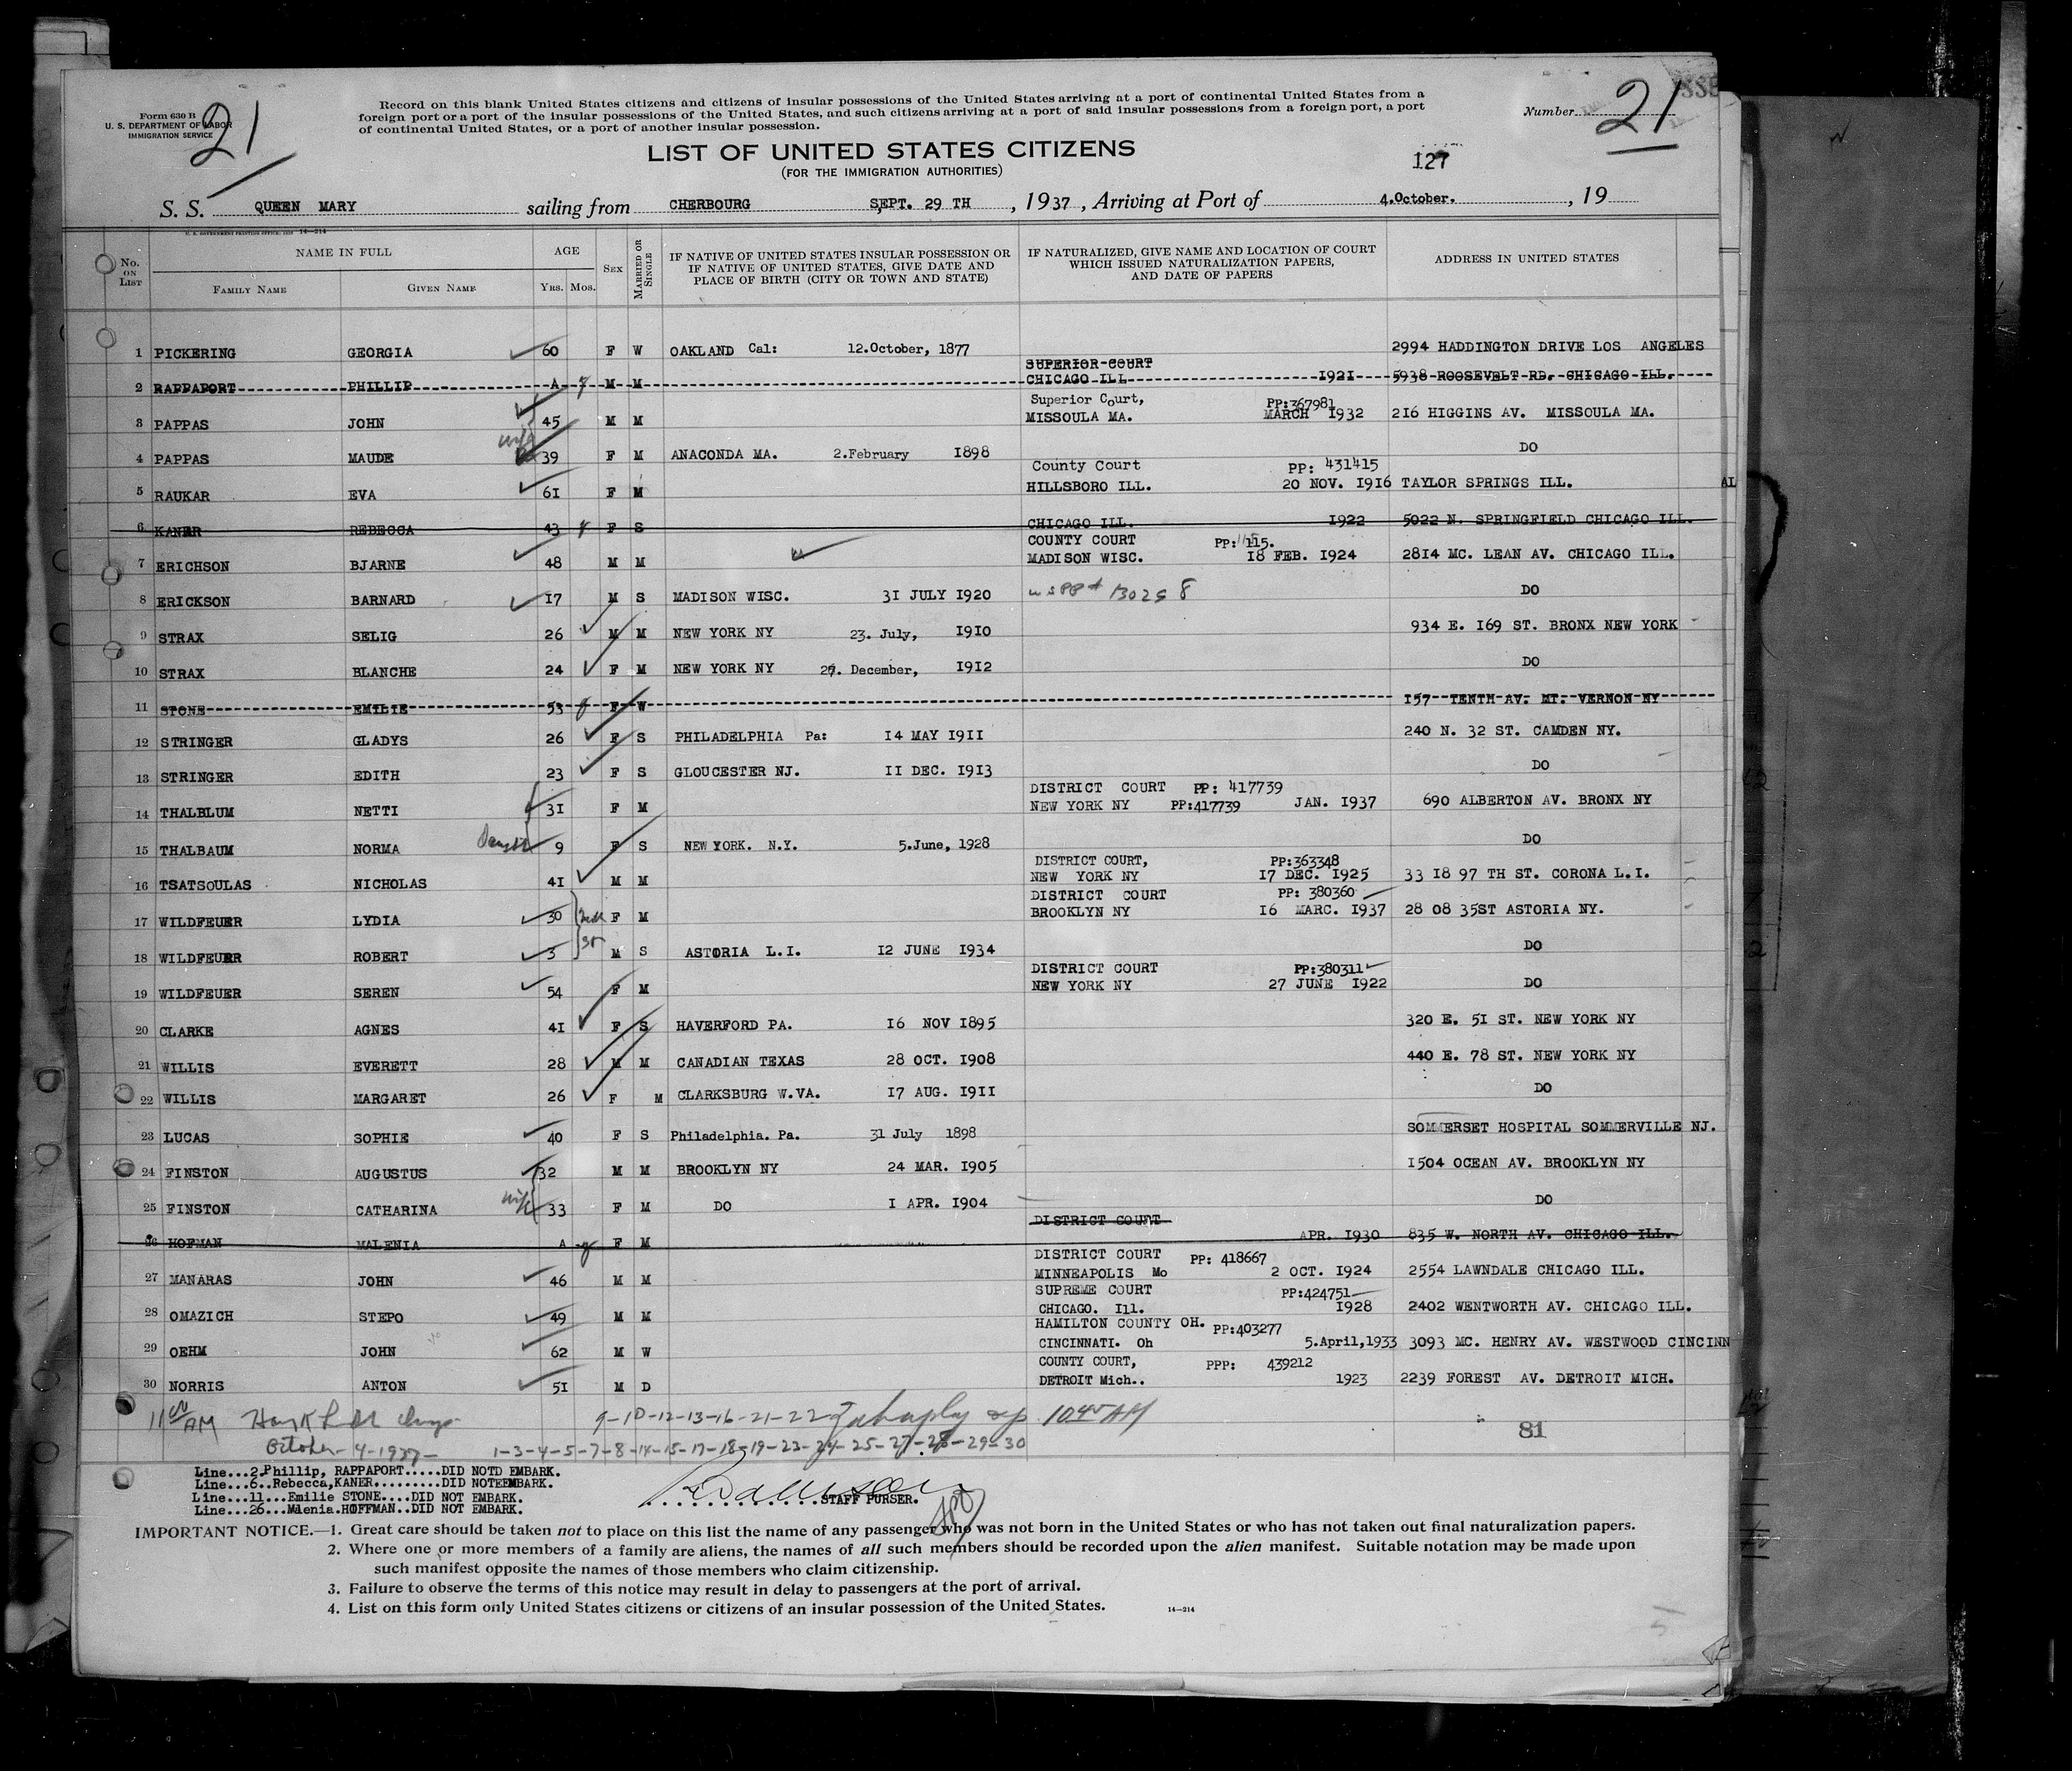 21
Form 630 B
U. S. DEPARTMENT OF LABOR
IMMIGRATION SERVICE
Record on this blank United States citizens and citizens of insular possessions of the United States arriving at a port of continental United States from a
foreign port or a port of the insular possessions of the United States, and such citizens arriving at a port of said insular possessions from a foreign port, a port
of continental United States, or a port of another insular possession.
Number 21
LIST OF UNITED STATES CITIZENS
(FOR THE IMMIGRATION AUTHORITIES)
127
S. S. QUEEN MARY sailing from CHERBOURG SEPT. 29 TH , 1937 , Arriving at Port of 4.October. , 19
No. ON LIST NAME IN FULL AGE SEX MARRIED OR SINGLE IF NATIVE OF UNITED STATES INSULAR POSSESSION OR IF NATIVE OF UNITED STATES, GIVE DATE AND PLACE OF BIRTH (CITY OR TOWN AND STATE) IF NATURALIZED, GIVE NAME AND LOCATION OF COURT WHICH ISSUED NATURALIZATION PAPERS, AND DATE OF PAPERS ADDRESS IN UNITED STATES
FAMILY NAME GIVEN NAME YRS. MOS.
1 PICKERING GEORGIA 60 F W OAKLAND Cal: 12.October, 1877 2994 HADDINGTON DRIVE LOS ANGELES
SUPERIOR COURT
2 RAPPAPORT PHILLIP A M M CHICAGO ILL 1921 5938 ROOSEVELT RD. CHICAGO ILL.
Superior Court, PP:367981
3 PAPPAS JOHN 45 M M MISSOULA MA. MARCH 1932 216 HIGGINS AV. MISSOULA MA.
wife
4 PAPPAS MAUDE 39 F M ANACONDA MA. 2.February 1898 DO
County Court PP: 431415
5 RAUKAR EVA 61 F M HILLSBORO ILL. 20 NOV. 1916 TAYLOR SPRINGS ILL.
6 KANER REBECCA 43 F S CHICAGO ILL. 1922 5022 N. SPRINGFIELD CHICAGO ILL.
COUNTY COURT PP: 115.
7 ERICHSON BJARNE 48 M M MADISON WISC. 18 FEB. 1924 2814 MC. LEAN AV. CHICAGO ILL.
8 ERICKSON BARNARD 17 M S MADISON WISC. 31 JULY 1920 DO
9 STRAX SELIG 26 M M NEW YORK NY 23. July, 1910 934 E. 169 ST. BRONX NEW YORK
10 STRAX BLANCHE 24 F M NEW YORK NY December, 1912 DO
11 STONE EMILIE 53 F W 157 TENTH AV. MT. VERNON NY
12 STRINGER GLADYS 26 F S PHILADELPHIA Pa: 14 MAY 1911 240 N. 32 ST. CAMDEN NY.
13 STRINGER EDITH 23 F S GLOUCESTER NJ. 11 DEC. 1913 DO
DISTRICT COURT PP: 417739
14 THALBLUM NETTI 31 F M NEW YORK NY PP:417739 JAN. 1937 690 ALBERTON AV. BRONX NY
15 THALBAUM NORMA 9 F S NEW YORK. N.Y. 5.June, 1928 DO
DISTRICT COURT, PP:363348
16 TSATSOULAS NICHOLAS 41 M M NEW YORK NY 17 DEC. 1925 33 18 97 TH ST. CORONA L.I.
DISTRICT COURT PP: 380360
17 WILDFEUER LYDIA 30 F M BROOKLYN NY 16 MARC. 1937 28 08 35ST ASTORIA NY.
18 WILDFEUER ROBERT 3 M S ASTORIA L.I. 12 JUNE 1934 DO
DISTRICT COURT PP:380311
19 WILDFEUER SEREN 54 F M NEW YORK NY 27 JUNE 1922 DO
20 CLARKE AGNES 41 F S HAVERFORD PA. 16 NOV 1895 320 E. 51 ST. NEW YORK NY
21 WILLIS EVERETT 28 M M CANADIAN TEXAS 28 OCT. 1908 440 E. 78 ST. NEW YORK NY
22 WILLIS MARGARET 26 F M CLARKSBURG W.VA. 17 AUG. 1911 DO
23 LUCAS SOPHIE 40 F S Philadelphia. Pa. 31 July 1898 SOMMERSET HOSPITAL SOMMERVILLE NJ.
24 FINSTON AUGUSTUS 32 M M BROOKLYN NY 24 MAR. 1905 1504 OCEAN AV. BROOKLYN NY
wife
25 FINSTON CATHARINA 33 F M DO 1 APR. 1904 DO
DISTRICT COURT
26 HOFMAN MALENIA A F M APR. 1930 835 W. NORTH AV. CHICAGO ILL.
DISTRICT COURT PP: 418667
27 MANARAS JOHN 46 M M MINNEAPOLIS Mo 2 OCT. 1924 2554 LAWNDALE CHICAGO ILL.
SUPREME COURT PP:424751
28 OMAZICH STEPO 49 M M CHICAGO. Ill. 1928 2402 WENTWORTH AV. CHICAGO ILL.
HAMILTON COUNTY OH. PP:403277
29 OEHM JOHN 62 M W CINCINNATI. Oh 5.April,1933 3093 MC. HENRY AV. WESTWOOD CINCINN
COUNTY COURT, PPP: 439212
30 NORRIS ANTON 51 M D DETROIT Mich.. 1923 2239 FOREST AV. DETROIT MICH.
AM 9-10-12-13-16-21-22 1045 AM
October-4-1937- 1-3-4-5-7-8-14-15-17-18-19-23-24-25-27-28-29-30
81
Line...2.Phillip, RAPPAPORT.....DID NOTD EMBARK.
Line...6..Rebecca,KANER.........DID NOTEEMBARK.
Line...11...Emilie STONE....DID NOT EMBARK.
Line...26...Mlenia.HOFFMAN..DID NOT EMBARK.
STAFF PURSER.
IMPORTANT NOTICE.—1. Great care should be taken not to place on this list the name of any passenger who was not born in the United States or who has not taken out final naturalization papers.
2. Where one or more members of a family are aliens, the names of all such members should be recorded upon the alien manifest. Suitable notation may be made upon
such manifest opposite the names of those members who claim citizenship.
3. Failure to observe the terms of this notice may result in delay to passengers at the port of arrival.
4. List on this form only United States citizens or citizens of an insular possession of the United States.
14—214